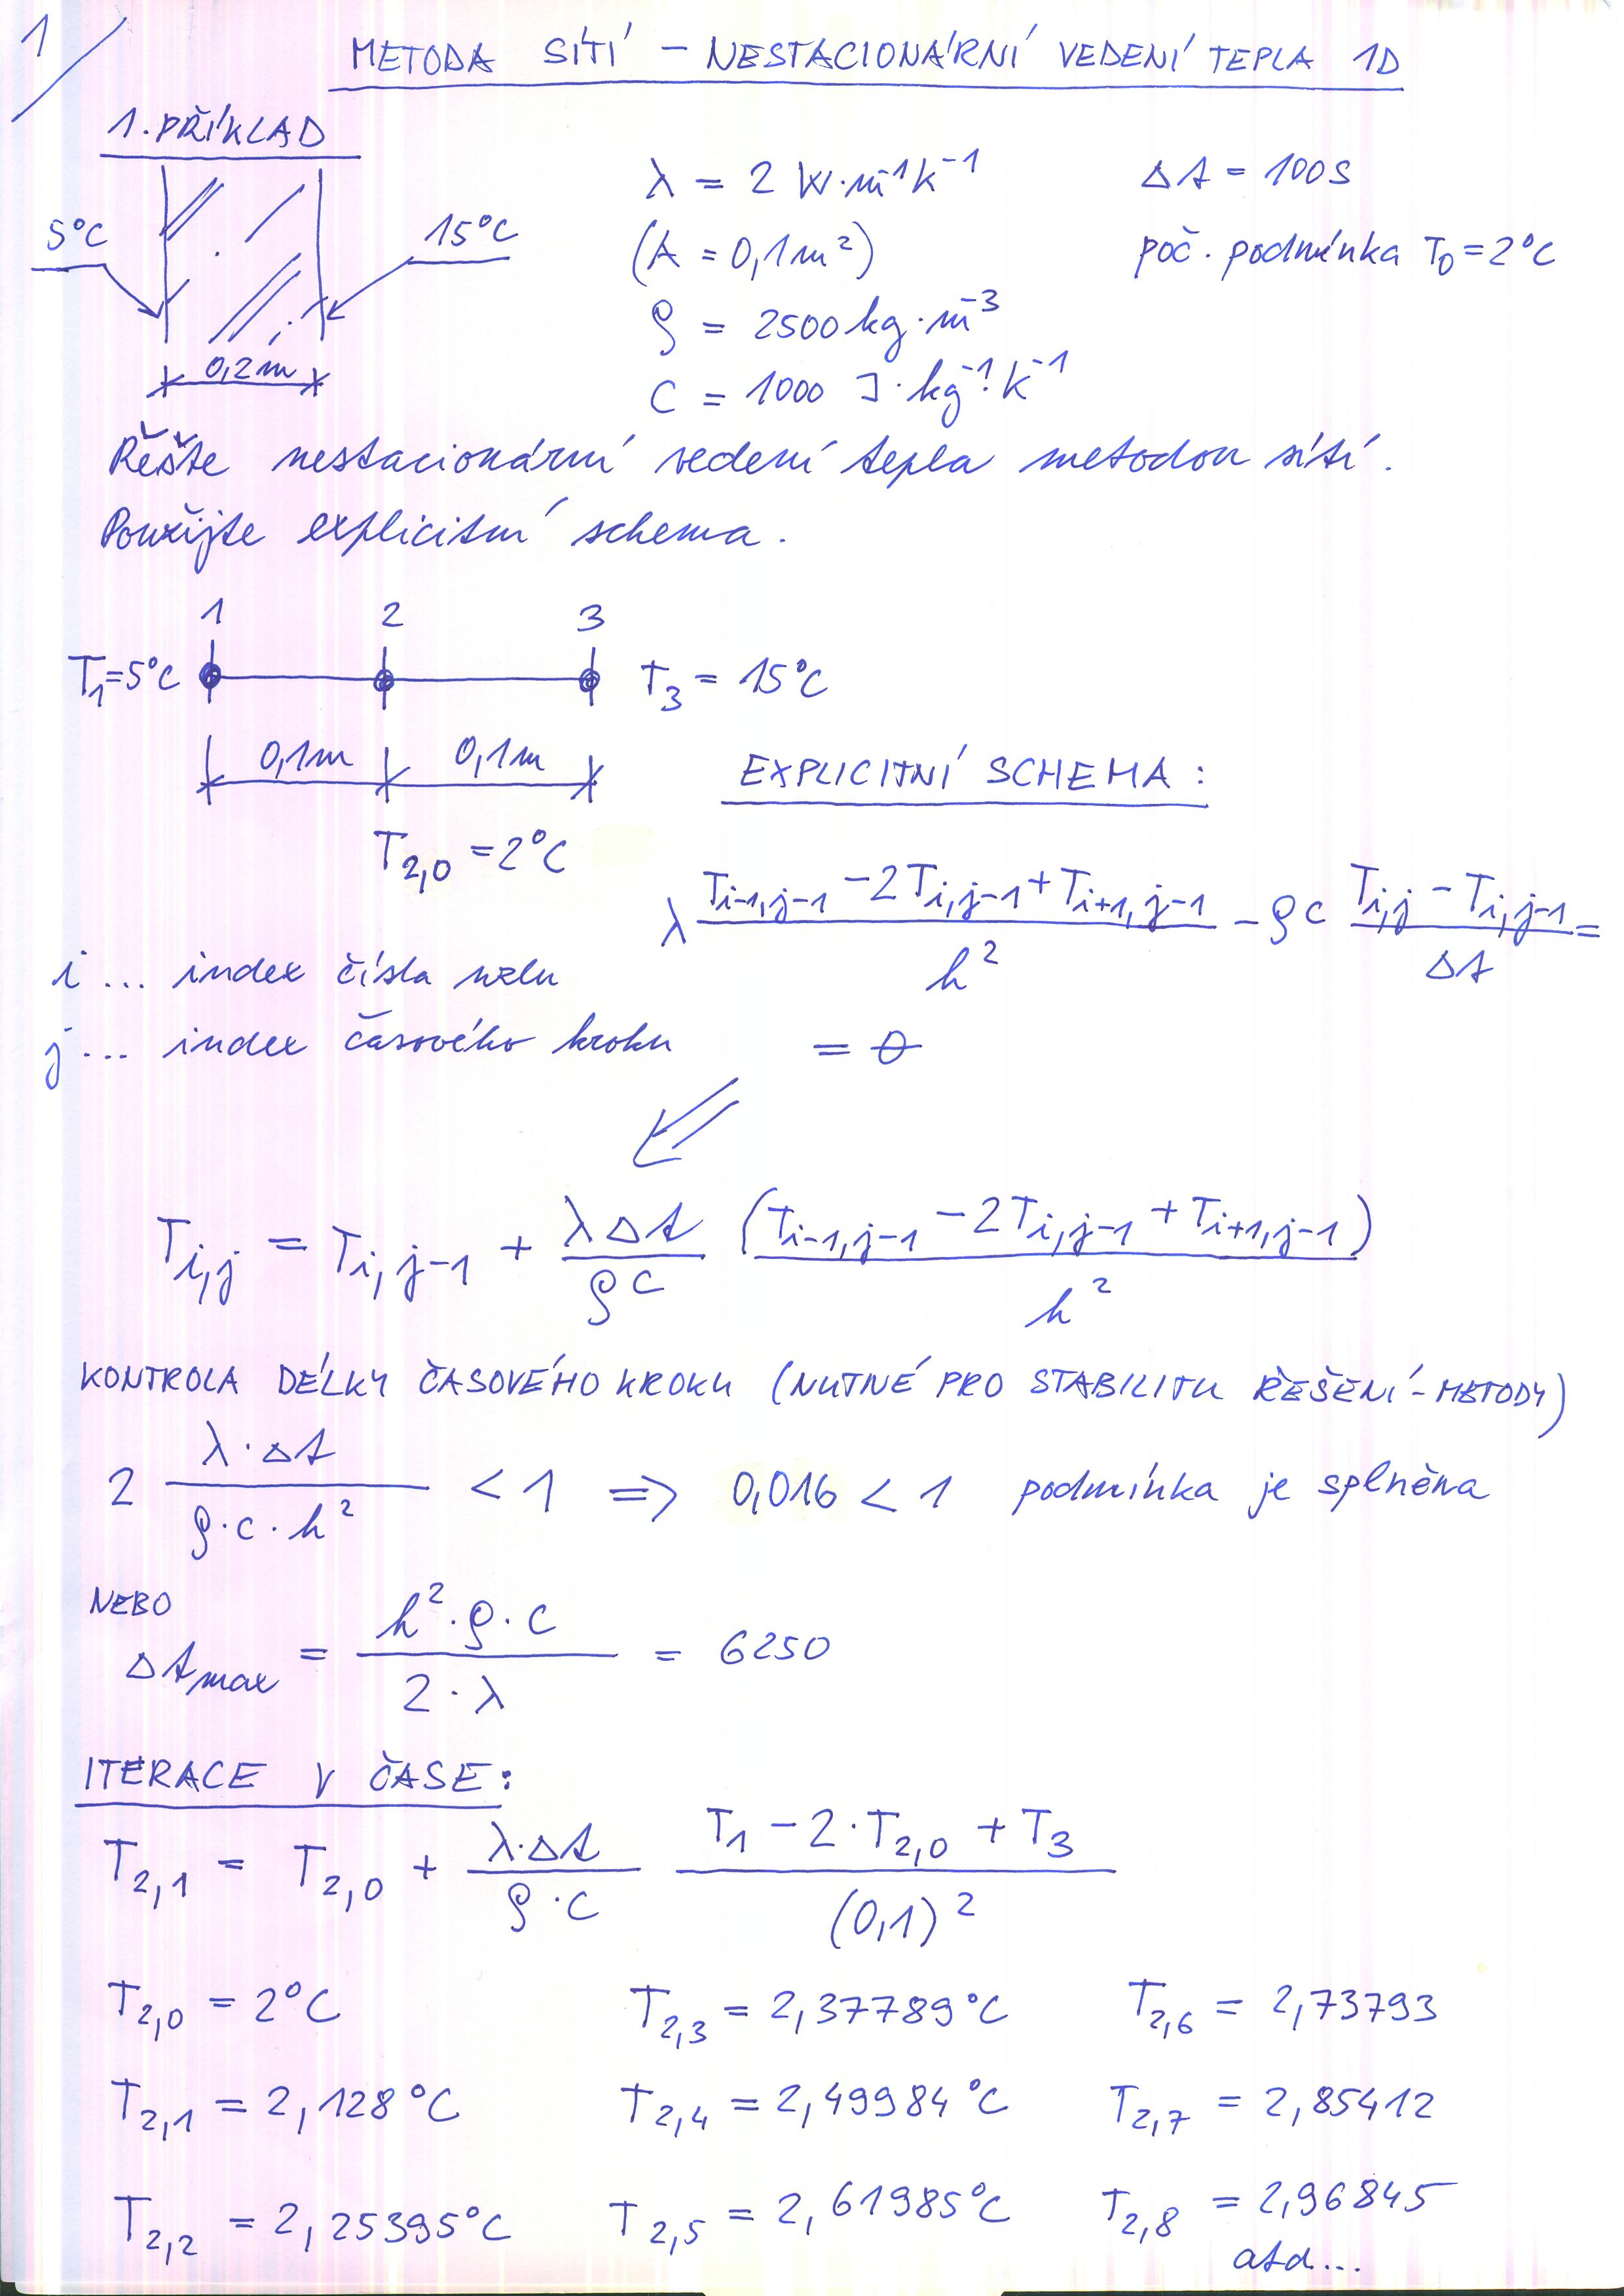 1
METODA SÍTÍ – NESTACIONÁRNÍ VEDENÍ TEPLA 1D
1. PŘÍKLAD
5°C
15°C
0,2m
λ = 2 W·m⁻¹K⁻¹
(A = 0,1m²)
ρ = 2500 kg·m⁻³
C = 1000 J·kg⁻¹·K⁻¹
Δt = 100s
poč. podmínka T₀ = 2°C
Řešte nestacionární vedení tepla metodou sítí.
Použijte explicitní schema.
1 2 3
T₁=5°C
T₃ = 15°C
0,1m 0,1m
T₂,₀ = 2°C
EXPLICITNÍ SCHEMA:
λ (Tᵢ₋₁,ⱼ₋₁ − 2Tᵢ,ⱼ₋₁ + Tᵢ₊₁,ⱼ₋₁)/h² − ρc (Tᵢ,ⱼ − Tᵢ,ⱼ₋₁)/Δt =
= 0
i ... index čísla uzlu
j ... index časového kroku
Tᵢ,ⱼ = Tᵢ,ⱼ₋₁ + λΔt/ρc (Tᵢ₋₁,ⱼ₋₁ − 2Tᵢ,ⱼ₋₁ + Tᵢ₊₁,ⱼ₋₁)/h²
KONTROLA DÉLKY ČASOVÉHO KROKU (NUTNÉ PRO STABILITU ŘEŠENÍ - METODY)
2 λ·Δt/ρ·c·h² < 1 => 0,016 < 1 podmínka je splněna
NEBO
Δt max = h²·ρ·c/2·λ = 6250
ITERACE V ČASE:
T₂,₁ = T₂,₀ + λ·Δt/ρ·c T₁ − 2·T₂,₀ + T₃/(0,1)²
T₂,₀ = 2°C
T₂,₁ = 2,128°C
T₂,₂ = 2,25395°C
T₂,₃ = 2,37789°C
T₂,₄ = 2,49984°C
T₂,₅ = 2,61985°C
T₂,₆ = 2,73793
T₂,₇ = 2,85412
T₂,₈ = 2,96845
atd...